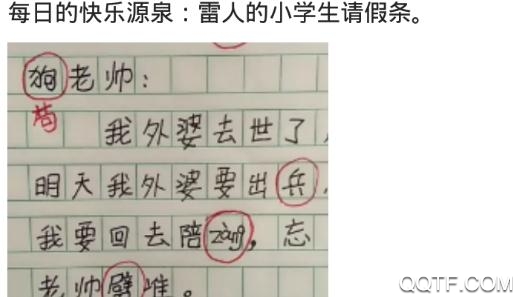 每日的快乐源泉：雷人的小学生请假条。
狗老帅：
苟
我外婆去世了，
明天我外婆要出兵，
我要回去陪zàng，忘
老帅劈准。
QQTF.COM